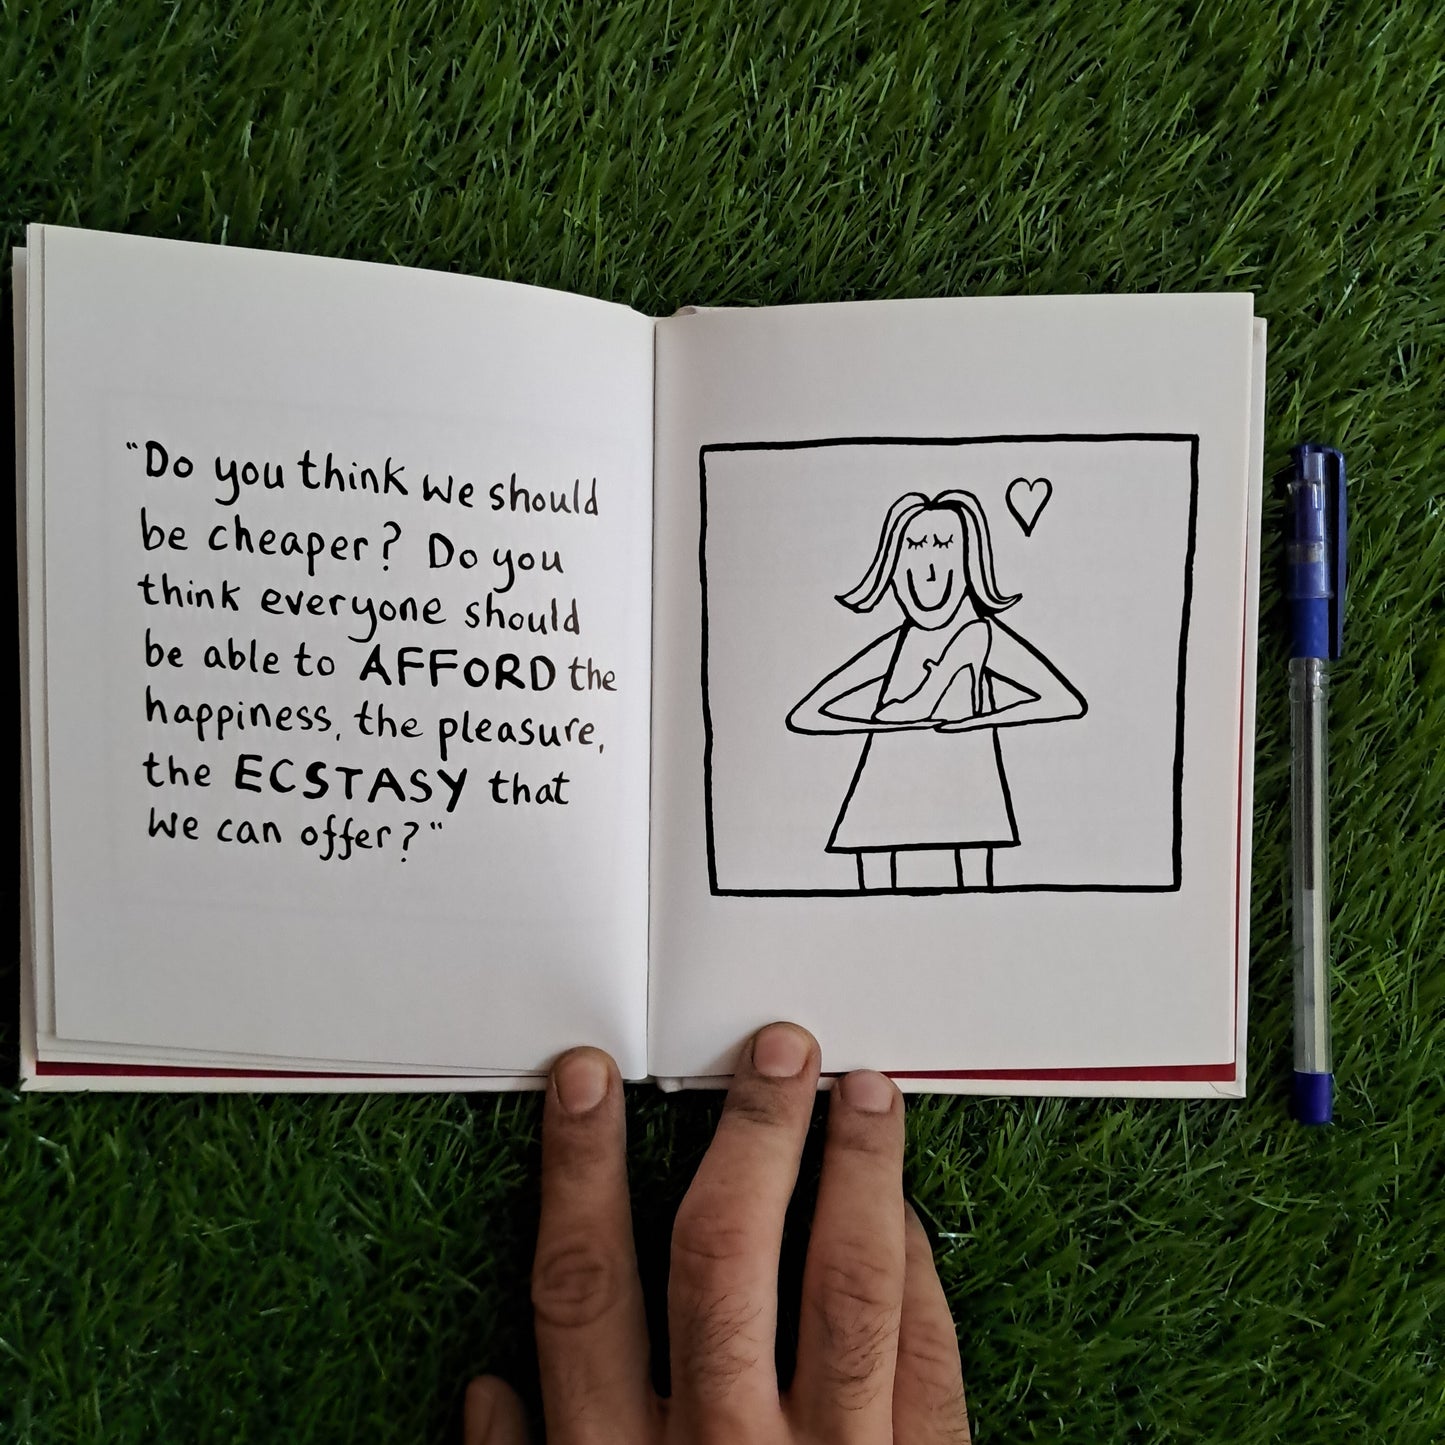 "Do you think we should
be cheaper? Do you
think everyone should
be able to AFFORD the
happiness, the pleasure,
the ECSTASY that
we can offer?"